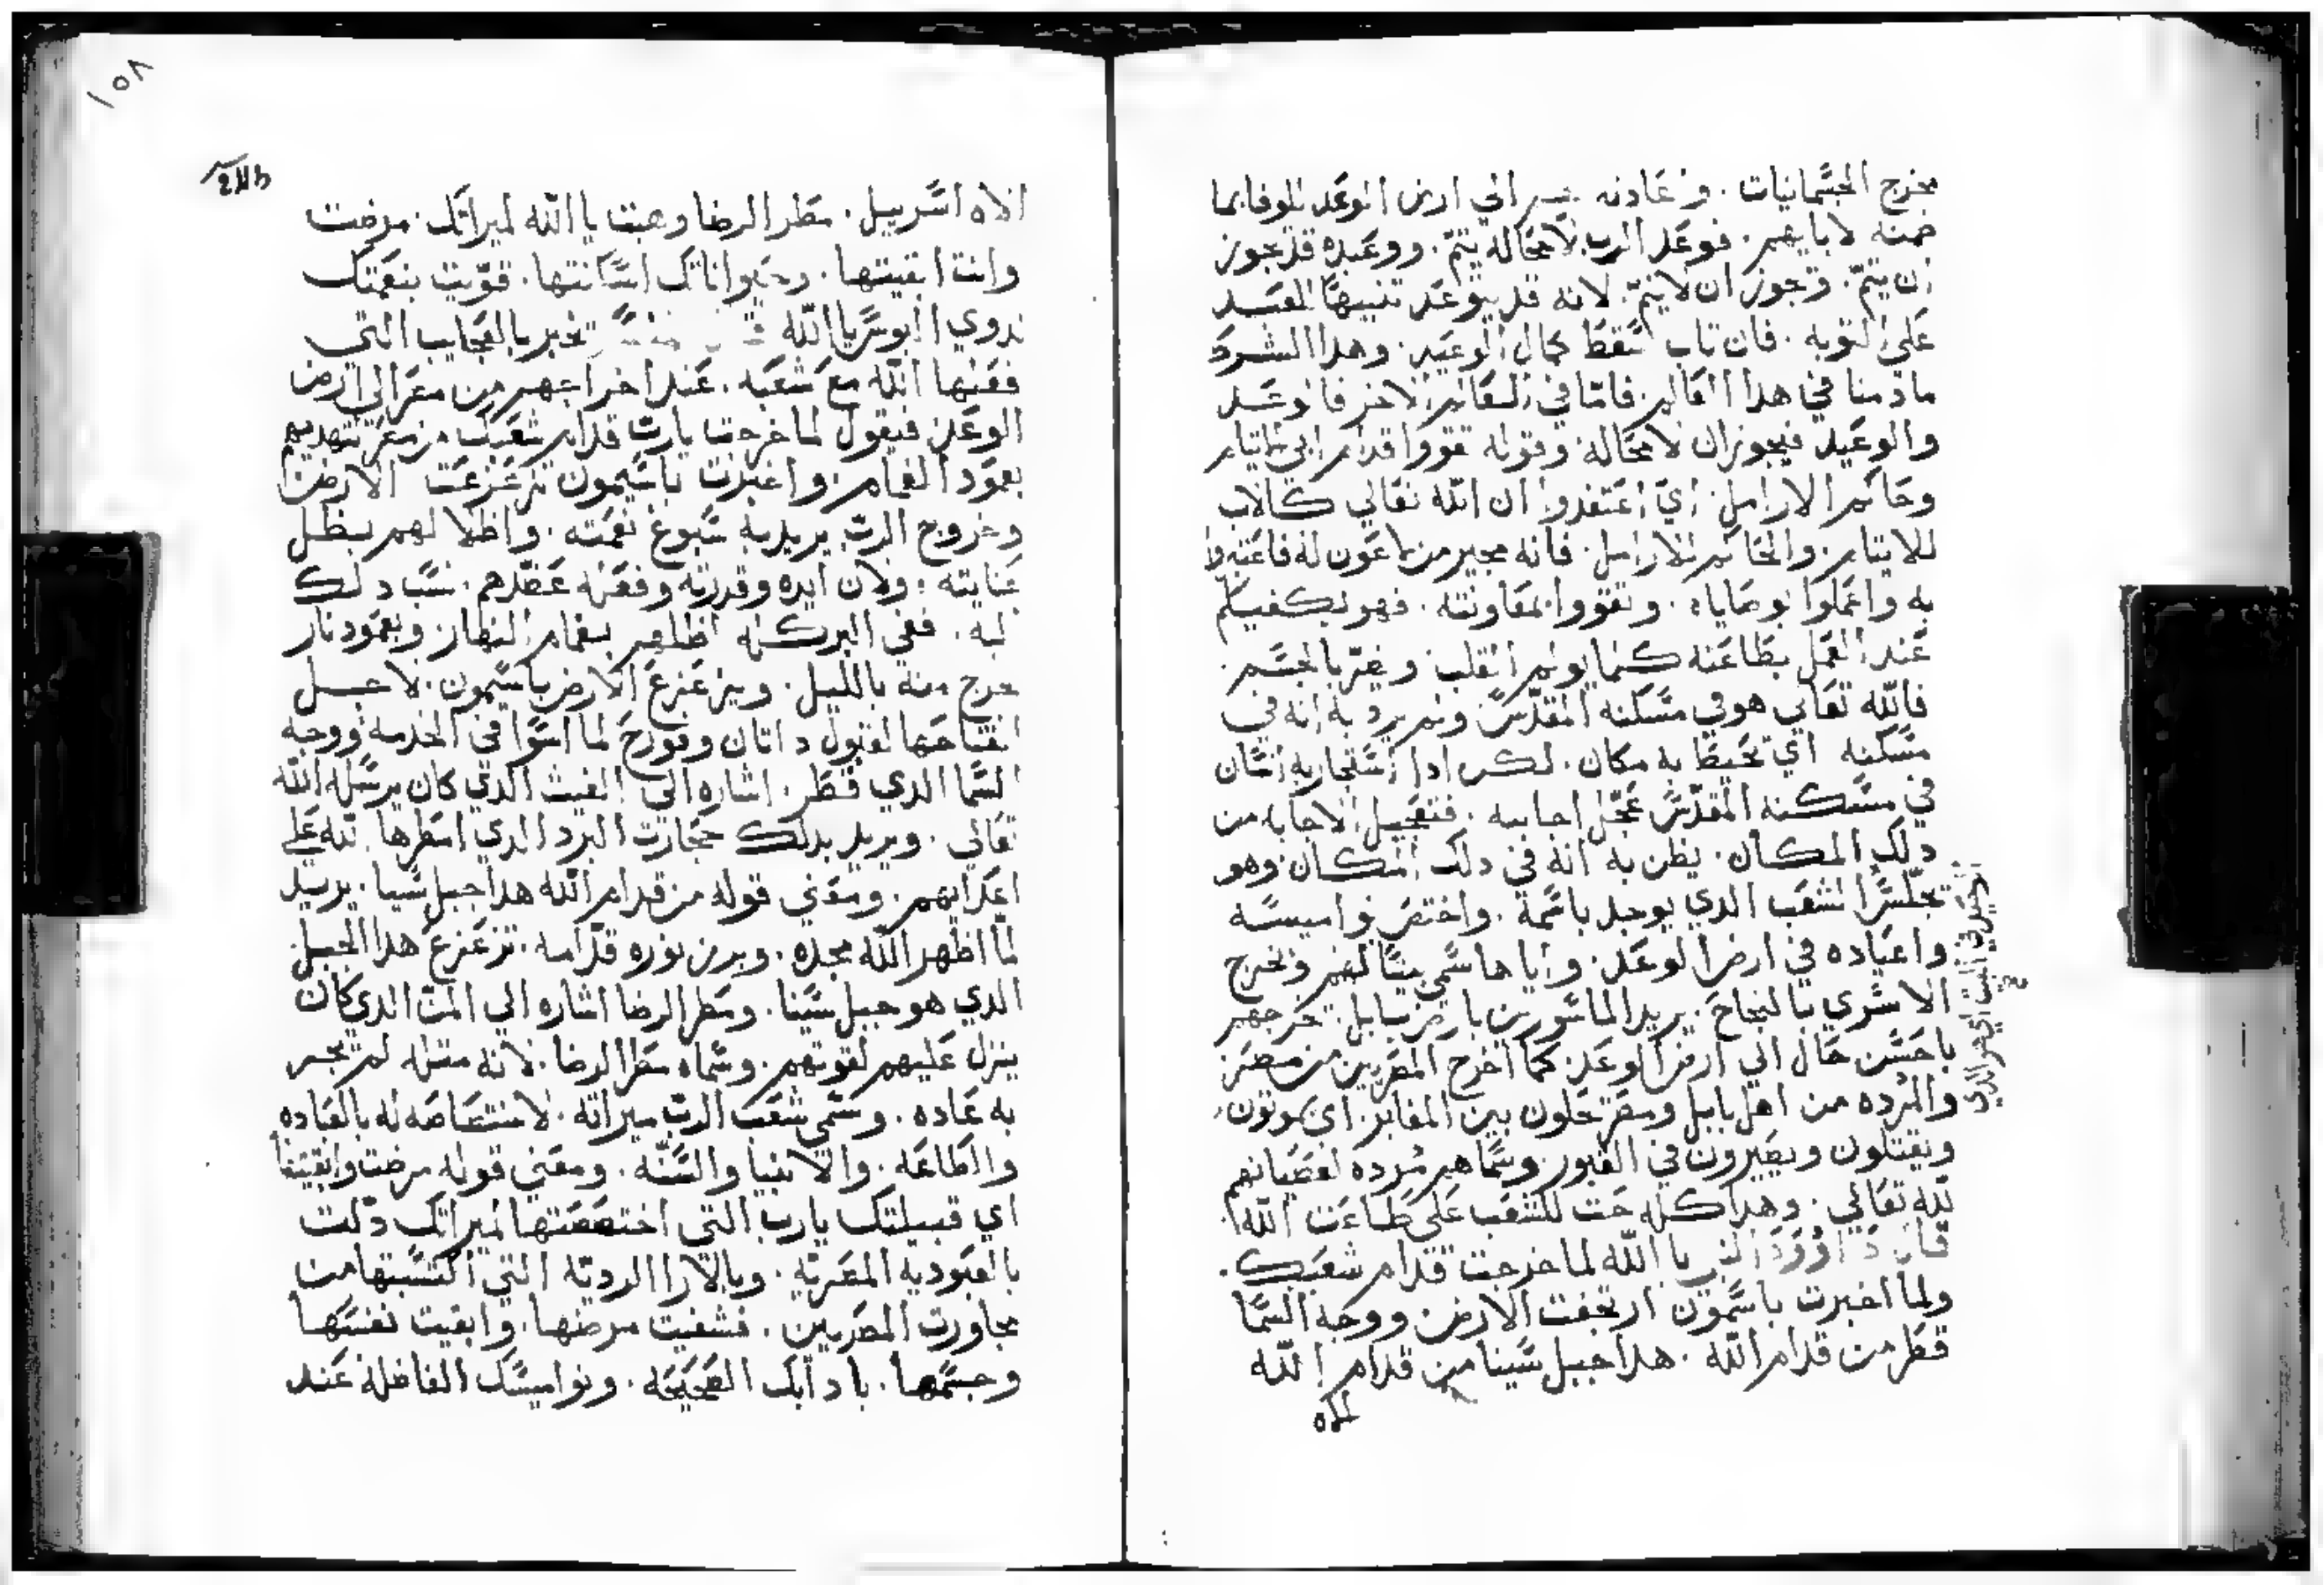 مخرج الجسمانيات . وعادته الي ارض الوعد للوفا بما
ضمنه لابايهم . فوعد الرب لا محاله يتم . ووعيده قد يجوز
ان يتم . وجوز ان لا يتم . لانه قد يتوعد تنبيهًا للعبد
علي التوبه . فان تاب سقط كمال الوعيد . وهدا الشرط
ما دمنا في هدا العالم . فاما في العالم الاخر فالوعد
والوعيد فيجوزان لا محاله . وقوله تقووا قدام ابي الايتام
وحاكم الارامل . اي اعتقدوا ان الله تعالي كالاب
للايتام . والحاكم للارامل . فانه مجير من لا عون له فاعتنوا
به واعملوا بوصاياه . وتقووا بمعاونته . فهو يكفيكم
عند العمل بطاعته كلما يولم القلب ويضر بالجسم .
فالله تعالي هو في مسكنه المقدس ولم يرد به انه في
مسكنه اي تحيط به مكان . لكن ادا استجار به انسان
في مسكنه المقدس عجل اجابيه . فتعجيل الاجابه من
دلك المكان . يظن به انه في دلك المكان وهو
تجلس الشعب الدي يوحد باسمه . واختص نواميسه
واعياده في ارض الوعد . واياها سمي بيتا لهم ويخرج
الاسري بالنجاح . يريد الماسورين بارض بابل . يخرجهم
باحسن حال الي ارض الوعد كما اخرج المصريين من مصر
والمرده من اهل بابل ومصر يحلون بين المقابر . اي يموتون
ويقتلون ويصيرون في القبور . وسماهم مرده لعصيانهم
لله تعالي . وهدا كله حت للشعب علي طاعت الله .
قال داوود النبي يا الله لما خرجت قدام شعبك .
ولما اعبرت باسمون ارتجفت الارض ووجه السما
قطر من قدام الله . هدا جبل سينا من قدام الله
الاه
الاه اسرييل . مطر الرضا وهبت يا الله لميراتك . مرضت
وانت ابقيتها . وحيواناتك اسكنتها . قوّيت بنعمتك
دوي البوس يا الله يخبر بالعجايب التي
فعلها الله مع شعبه . عند اخراجهم من مصر الي ارض
الوعد . فيقول لما خرجت يارب قدام شعبك من مصر تهديهم
بعمود الغمام . واعبرت باسيمون تزعزعت الارض
وخروج الرب يريد به سبوغ نعمته . واظلالهم بظل
عنايته . ولان ايده وقدرته وفعله عضدهم . نسب دلك
اليه . ففي البركيه اظلهم بغمام النهار وبعمود نار
خرج منه بالليل . وتزعزع الارض باسيمون . لاجل
انفتاحها لقبول داتان وقورح لما اسوا في الخدمه ووجه
السما الدي قطر . اشاره الي الغيث الدي كان يرسله الله
تعالي . ويريد بدلك حجارت البرد الدي امطرها الله علي
اعدايهم . ومعني قوله من قدام الله هدا جبل سينا . يريد
لما اظهر الله مجده . وبرز نوره قدامه . تزعزع هدا الجبل
الدي هو جبل سينا . ومطر الرضا اشاره الي المن الدي كان
ينزل عليهم لقوتهم . وسماه مطر الرضا . لانه متله لم تجر
به عاده . وسمي شعب الرب ميراته . لاختصاصه له بالعباده
والطاعه . والانبيا والسنّه . ومعني قوله مرضت وابقيتها
اي قبيلتك يارب التي اختصصتها لميراتك دلّت
بالعبوديه المصريه . وبالارا الرديّه التي اكتسبتها من
مجاورت المصريين . فشفيت مرضها . وابقيت نفسها
وجسمها . بادابك الصحيحه . ونواميسك الفاضله عند
١٥٨